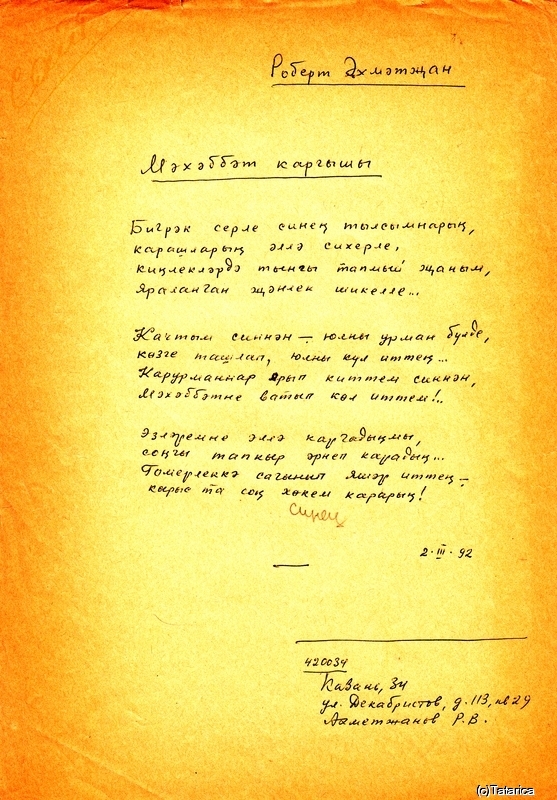 Роберт Әхмәтҗан
Мәхәббәт каргышы
Бигрәк серле синең тылсымнарың,
карашларың әллә сихерле,
киңлекләрдә тынгы тапмый җаным,
яраланган җәнлек шикелле...
Качтым синнән — юлны урман бүлде,
көзге ташлап, юлны күл иттең...
Карурманнар ярып киттем синнән,
Мәхәббәтне ватып көл иттем!..
Эзләремне әллә каргадыңмы,
соңгы тапкыр әрнеп карадың...
Гомерлеккә сагынып яшәр иттең —
кырыс та соң хөкем карарың!
синең
2. III. 92
420034
Казань, 34
ул. Декабристов, д. 113, кв 29
Ахметжанов Р. В.
(c)Tatarica